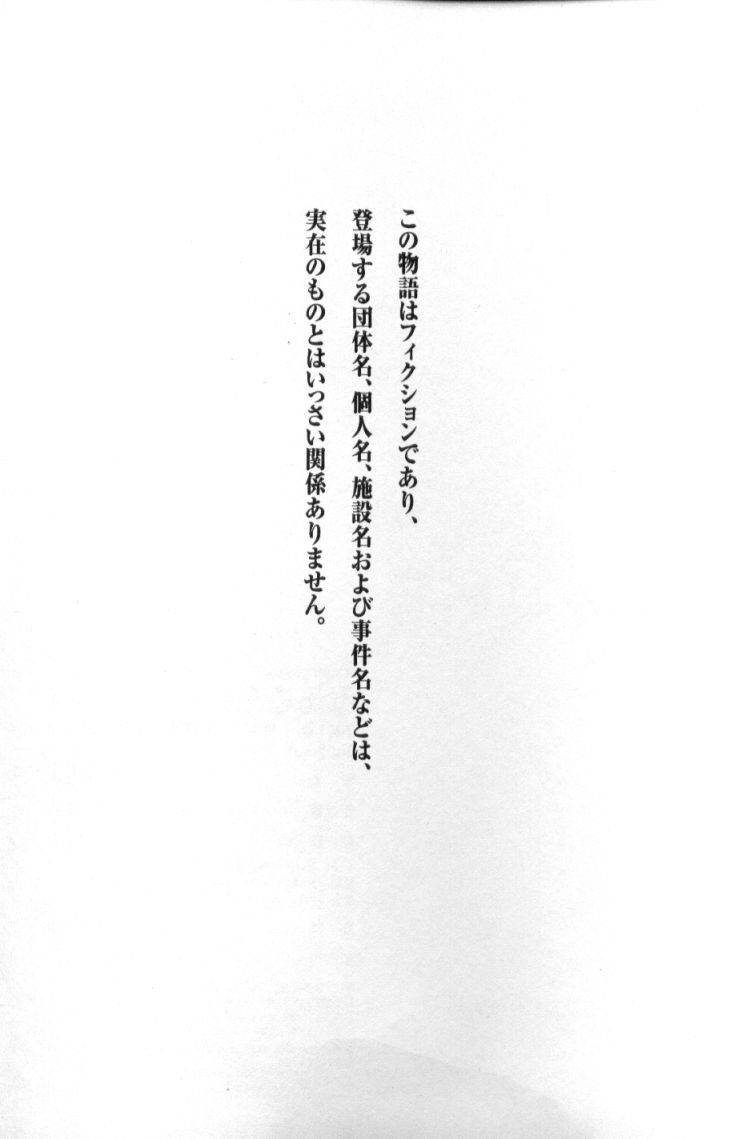 この物語はフィクションであり、
登場する団体名、個人名、施設名および事件名などは、
実在のものとはいっさい関係ありません。